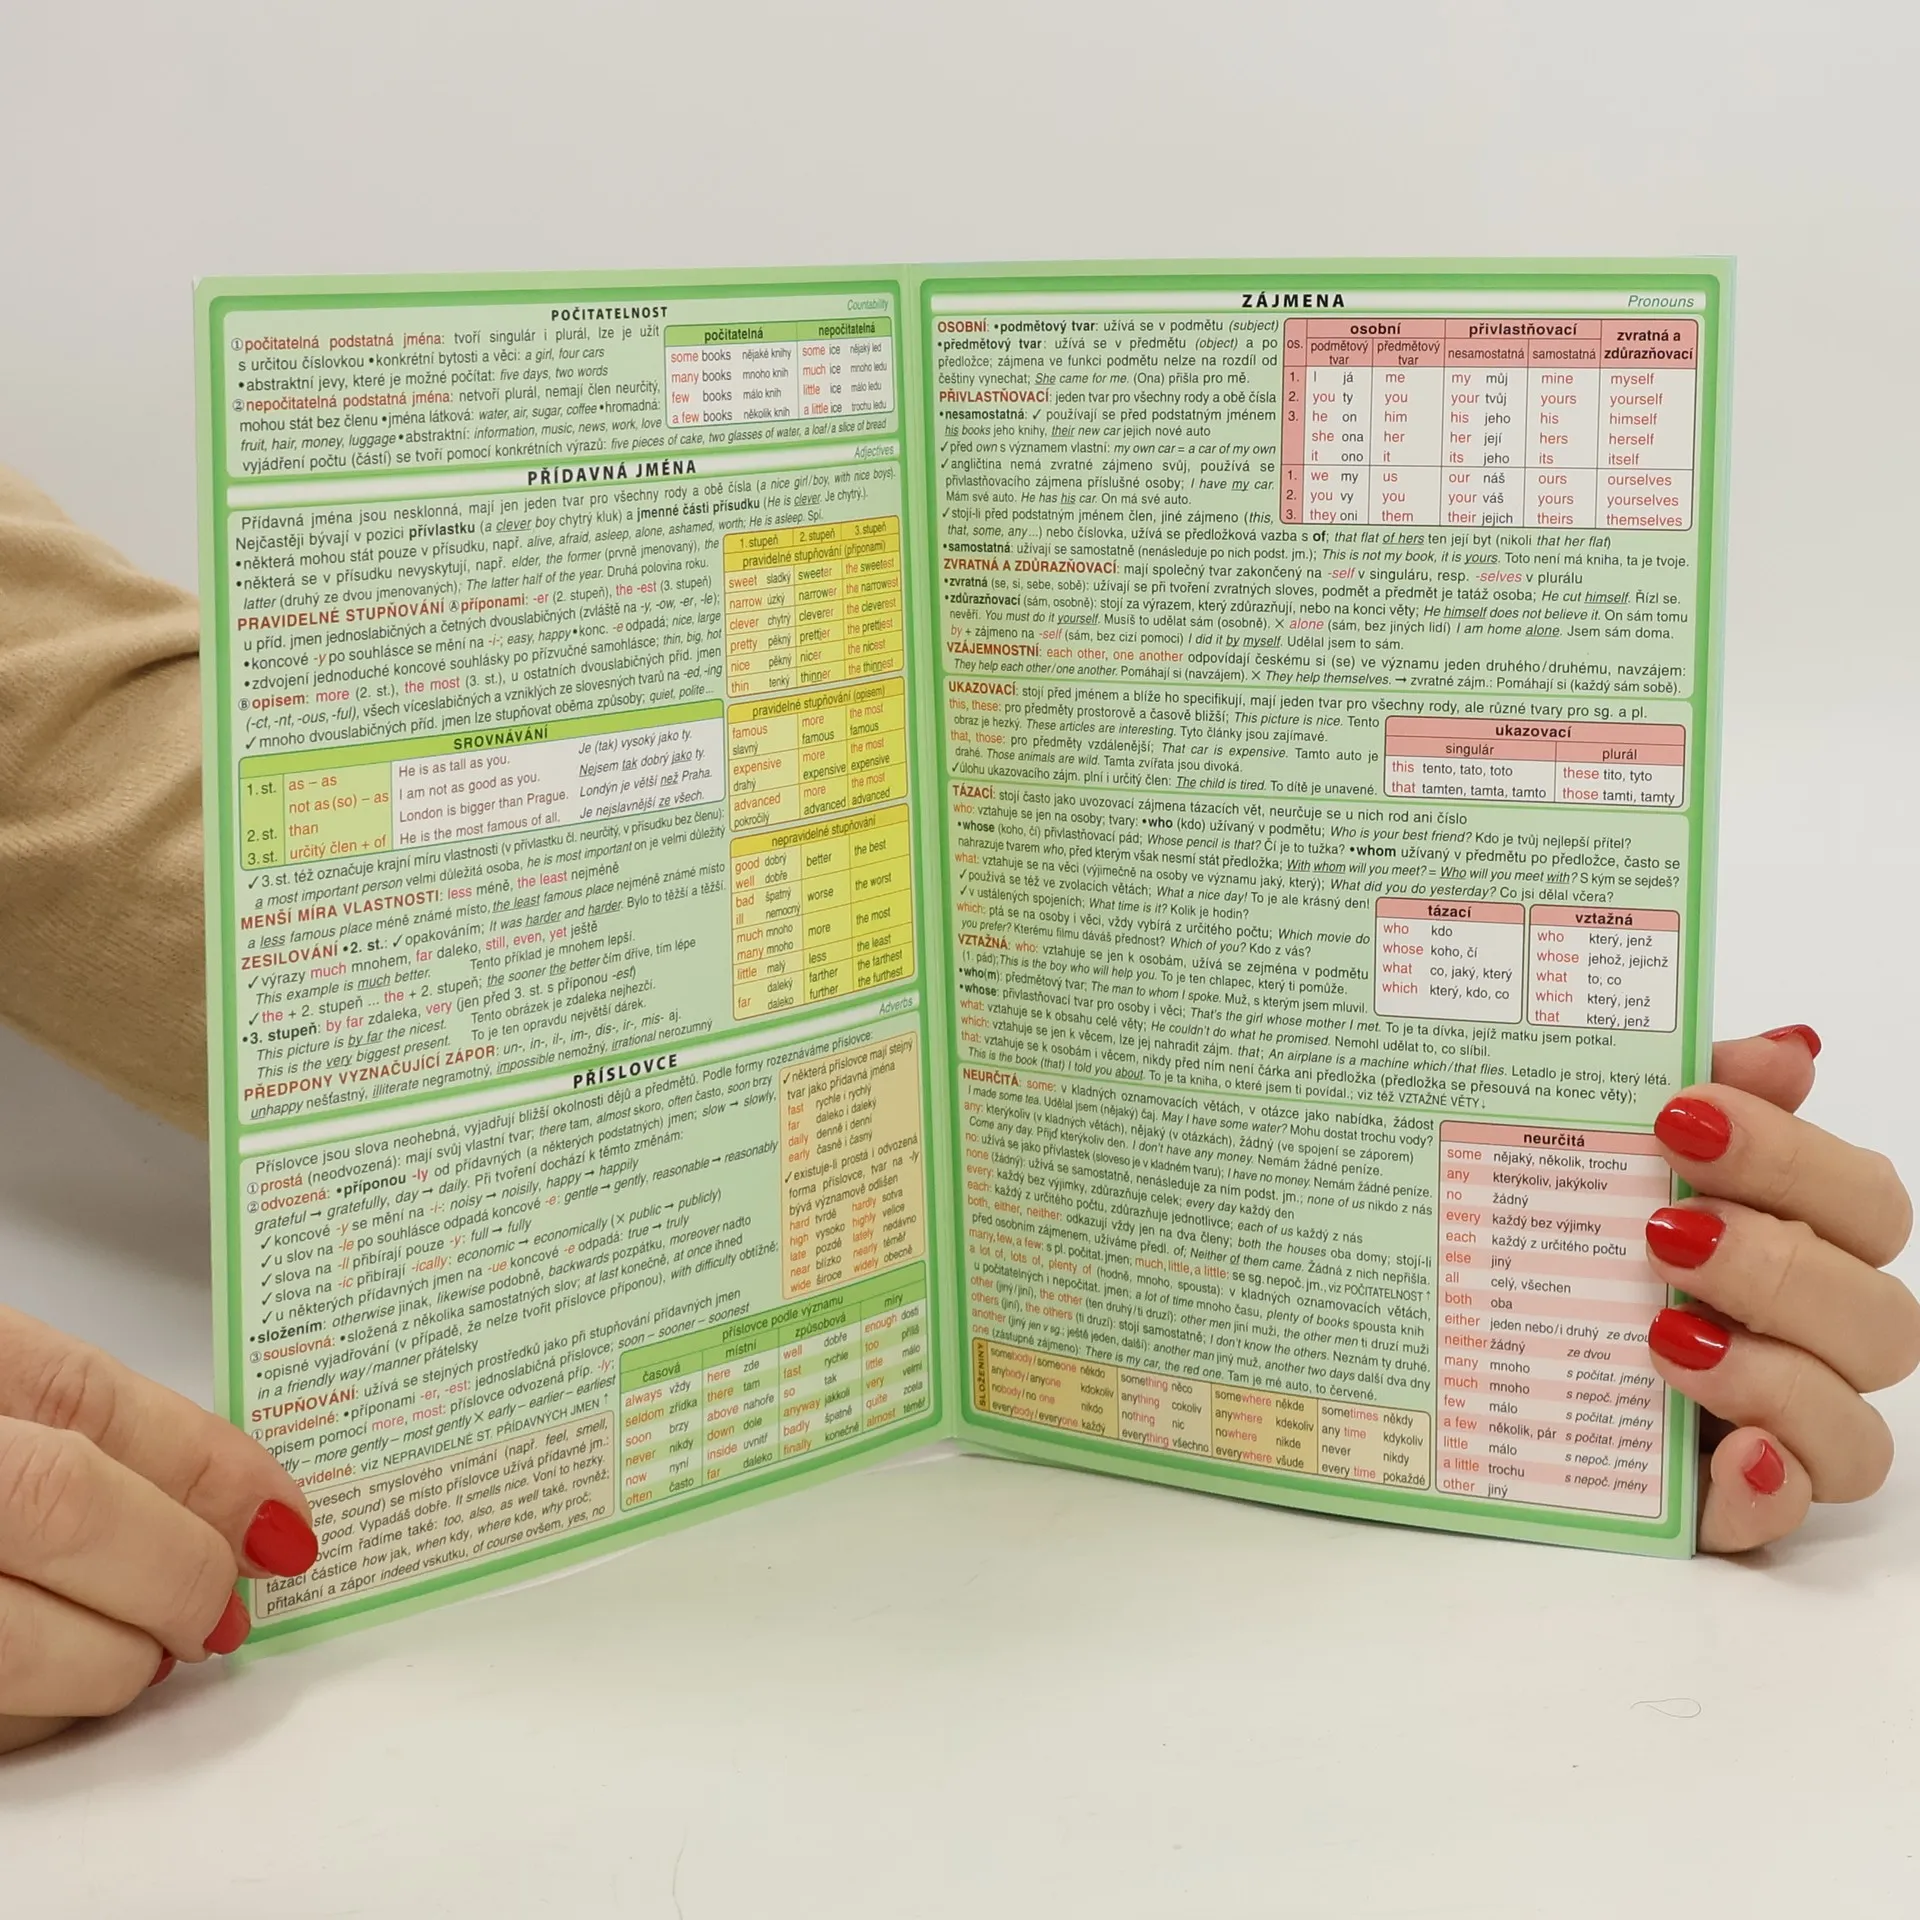 POČITATELNOST
Countability
①počitatelná podstatná jména: tvoří singulár i plurál, lze je užít
s určitou číslovkou •konkrétní bytosti a věci: a girl, four cars
•abstraktní jevy, které je možné počítat: five days, two words
②nepočitatelná podstatná jména: netvoří plurál, nemají člen neurčitý,
mohou stát bez členu •jména látková: water, air, sugar, coffee •hromadná:
fruit, hair, money, luggage •abstraktní: information, music, news, work, love
vyjádření počtu (částí) se tvoří pomocí konkrétních výrazů: five pieces of cake, two glasses of water, a loaf/a slice of bread
počitatelná nepočitatelná
some books nějaké knihy some ice nějaký led
many books mnoho knih much ice mnoho ledu
few books málo knih little ice málo ledu
a few books několik knih a little ice trochu ledu
PŘÍDAVNÁ JMÉNA
Adjectives
Přídavná jména jsou nesklonná, mají jen jeden tvar pro všechny rody a obě čísla (a nice girl/boy, with nice boys).
Nejčastěji bývají v pozici přívlastku (a clever boy chytrý kluk) a jmenné části přísudku (He is clever. Je chytrý.).
•některá mohou stát pouze v přísudku, např. alive, afraid, asleep, alone, ashamed, worth; He is asleep. Spí.
•některá se v přísudku nevyskytují, např. elder, the former (prvně jmenovaný), the
latter (druhý ze dvou jmenovaných); The latter half of the year. Druhá polovina roku.
PRAVIDELNÉ STUPŇOVÁNÍ Ⓐpříponami: -er (2. stupeň), the -est (3. stupeň)
u příd. jmen jednoslabičných a četných dvouslabičných (zvláště na -y, -ow, -er, -le);
•koncové -y po souhlásce se mění na -i-; easy, happy •konc. -e odpadá; nice, large
•zdvojení jednoduché koncové souhlásky po přízvučné samohlásce; thin, big, hot
Ⓑopisem: more (2. st.), the most (3. st.), u ostatních dvouslabičných příd. jmen
(-ct, -nt, -ous, -ful), všech víceslabičných a vzniklých ze slovesných tvarů na -ed, -ing
✓mnoho dvouslabičných příd. jmen lze stupňovat oběma způsoby; quiet, polite...
1. stupeň 2. stupeň 3. stupeň
pravidelné stupňování (příponami)
sweet sladký sweeter the sweetest
narrow úzký narrower the narrowest
clever chytrý cleverer the cleverest
pretty pěkný prettier the prettiest
nice pěkný nicer the nicest
thin tenký thinner the thinnest
pravidelné stupňování (opisem)
famous more the most
slavný famous famous
expensive more the most
drahý expensive expensive
advanced more the most
pokročilý advanced advanced
nepravidelné stupňování
good dobrý better the best
well dobře
bad špatný worse the worst
ill nemocný
much mnoho more the most
many mnoho
little malý less the least
far daleký farther the farthest
daleko further the furthest
SROVNÁVÁNÍ
1. st. as – as He is as tall as you. Je (tak) vysoký jako ty.
not as (so) – as I am not as good as you. Nejsem tak dobrý jako ty.
2. st. than London is bigger than Prague. Londýn je větší než Praha.
3. st. určitý člen + of He is the most famous of all. Je nejslavnější ze všech.
✓3. st. též označuje krajní míru vlastnosti (v přívlastku čl. neurčitý, v přísudku bez členu):
a most important person velmi důležitá osoba, he is most important on je velmi důležitý
MENŠÍ MÍRA VLASTNOSTI: less méně, the least nejméně
a less famous place méně známé místo, the least famous place nejméně známé místo
ZESILOVÁNÍ •2. st.: ✓opakováním; It was harder and harder. Bylo to těžší a těžší.
✓výrazy much mnohem, far daleko, still, even, yet ještě
This example is much better. Tento příklad je mnohem lepší.
✓the + 2. stupeň ... the + 2. stupeň; the sooner the better čím dříve, tím lépe
•3. stupeň: by far zdaleka, very (jen před 3. st. s příponou -est)
This picture is by far the nicest. Tento obrázek je zdaleka nejhezčí.
This is the very biggest present. To je ten opravdu největší dárek.
PŘEDPONY VYZNAČUJÍCÍ ZÁPOR: un-, in-, il-, im-, dis-, ir-, mis- aj.
unhappy nešťastný, illiterate negramotný, impossible nemožný, irrational nerozumný
PŘÍSLOVCE
Adverbs
Příslovce jsou slova neohebná, vyjadřují bližší okolnosti dějů a předmětů. Podle formy rozeznáváme příslovce:
①prostá (neodvozená): mají svůj vlastní tvar; there tam, almost skoro, often často, soon brzy
②odvozená: •příponou -ly od přídavných (a některých podstatných) jmen; slow → slowly,
grateful → gratefully, day → daily. Při tvoření dochází k těmto změnám:
✓koncové -y se mění na -i-: noisy → noisily, happy → happily
✓u slov na -le po souhlásce odpadá koncové -e: gentle → gently, reasonable → reasonably
✓slova na -ll přibírají pouze -y: full → fully
✓slova na -ic přibírají -ically: economic → economically (× public → publicly)
✓u některých přídavných jmen na -ue koncové -e odpadá: true → truly
•složením: otherwise jinak, likewise podobně, backwards pozpátku, moreover nadto
③souslovná: •složená z několika samostatných slov; at last konečně, at once ihned
•opisné vyjadřování (v případě, že nelze tvořit příslovce příponou), with difficulty obtížně;
in a friendly way/manner přátelsky
STUPŇOVÁNÍ: užívá se stejných prostředků jako při stupňování přídavných jmen
①pravidelné: •příponami -er, -est: jednoslabičná příslovce; soon – sooner – soonest
opisem pomocí more, most: příslovce odvozená příp. -ly;
– more gently – most gently × early – earlier – earliest
viz NEPRAVIDELNÉ ST. PŘÍDAVNÝCH JMEN ↑
smyslového vnímání (např. feel, smell,
sound) se místo příslovce užívá přídavné jm.:
good. Vypadáš dobře. It smells nice. Voní to hezky.
řadíme také: too, also, as well také, rovněž;
tázací částice how jak, when kdy, where kde, why proč;
přitakání a zápor indeed vskutku, of course ovšem, yes, no
✓některá příslovce mají stejný
tvar jako přídavná jména
fast rychle i rychlý
far daleko i daleký
daily denně i denní
early časně i časný
✓existuje-li prostá i odvozená
forma příslovce, tvar na -ly
bývá významově odlišen
hard tvrdě hardly sotva
high vysoko highly velice
late pozdě lately nedávno
near blízko nearly téměř
wide široce widely obecně
příslovce podle významu
časová místní způsobová míry
always vždy here zde well dobře enough dosti
seldom zřídka there tam fast rychle too příliš
soon brzy above nahoře so tak little málo
never nikdy down dole anyway jakkoli very velmi
now nyní inside uvnitř badly špatně quite zcela
often často far daleko finally konečně almost téměř
ZÁJMENA
Pronouns
OSOBNÍ: •podmětový tvar: užívá se v podmětu (subject)
•předmětový tvar: užívá se v předmětu (object) a po
předložce; zájmena ve funkci podmětu nelze na rozdíl od
češtiny vynechat; She came for me. (Ona) přišla pro mě.
PŘIVLASTŇOVACÍ: jeden tvar pro všechny rody a obě čísla
•nesamostatná: ✓ používají se před podstatným jménem
his books jeho knihy, their new car jejich nové auto
✓před own s významem vlastní: my own car = a car of my own
✓angličtina nemá zvratné zájmeno svůj, používá se
přivlastňovacího zájmena příslušné osoby; I have my car.
Mám své auto. He has his car. On má své auto.
✓stojí-li před podstatným jménem člen, jiné zájmeno (this,
that, some, any...) nebo číslovka, užívá se předložková vazba s of; that flat of hers ten její byt (nikoli that her flat)
•samostatná: užívají se samostatně (nenásleduje po nich podst. jm.); This is not my book, it is yours. Toto není má kniha, ta je tvoje.
os. osobní přivlastňovací zvratná a zdůrazňovací
podmětový tvar předmětový tvar nesamostatná samostatná
1. I já me my můj mine myself
2. you ty you your tvůj yours yourself
3. he on him his jeho his himself
she ona her her její hers herself
it ono it its jeho its itself
1. we my us our náš ours ourselves
2. you vy you your váš yours yourselves
3. they oni them their jejich theirs themselves
ZVRATNÁ A ZDŮRAZŇOVACÍ: mají společný tvar zakončený na -self v singuláru, resp. -selves v plurálu
•zvratná (se, si, sebe, sobě): užívají se při tvoření zvratných sloves, podmět a předmět je tatáž osoba; He cut himself. Řízl se.
•zdůrazňovací (sám, osobně): stojí za výrazem, který zdůrazňují, nebo na konci věty; He himself does not believe it. On sám tomu
nevěří. You must do it yourself. Musíš to udělat sám (osobně). × alone (sám, bez jiných lidí) I am home alone. Jsem sám doma.
by + zájmeno na -self (sám, bez cizí pomoci) I did it by myself. Udělal jsem to sám.
VZÁJEMNOSTNÍ: each other, one another odpovídají českému si (se) ve významu jeden druhého/druhému, navzájem:
They help each other/one another. Pomáhají si (navzájem). × They help themselves. → zvratné zájm.: Pomáhají si (každý sám sobě).
UKAZOVACÍ: stojí před jménem a blíže ho specifikují, mají jeden tvar pro všechny rody, ale různé tvary pro sg. a pl.
this, these: pro předměty prostorově a časově bližší; This picture is nice. Tento
obraz je hezký. These articles are interesting. Tyto články jsou zajímavé.
that, those: pro předměty vzdálenější; That car is expensive. Tamto auto je
drahé. Those animals are wild. Tamta zvířata jsou divoká.
✓úlohu ukazovacího zájm. plní i určitý člen: The child is tired. To dítě je unavené.
ukazovací
singulár plurál
this tento, tato, toto these tito, tyto
that tamten, tamta, tamto those tamti, tamty
TÁZACÍ: stojí často jako uvozovací zájmena tázacích vět, neurčuje se u nich rod ani číslo
who: vztahuje se jen na osoby; tvary: •who (kdo) užívaný v podmětu; Who is your best friend? Kdo je tvůj nejlepší přítel?
•whose (koho, čí) přivlastňovací pád; Whose pencil is that? Čí je to tužka? •whom užívaný v předmětu po předložce, často se
nahrazuje tvarem who, před kterým však nesmí stát předložka; With whom will you meet? = Who will you meet with? S kým se sejdeš?
what: vztahuje se na věci (výjimečně na osoby ve významu jaký, který); What did you do yesterday? Co jsi dělal včera?
✓používá se též ve zvolacích větách; What a nice day! To je ale krásný den!
✓v ustálených spojeních; What time is it? Kolik je hodin?
which: ptá se na osoby i věci, vždy vybírá z určitého počtu; Which movie do
you prefer? Kterému filmu dáváš přednost? Which of you? Kdo z vás?
tázací
who kdo
whose koho, čí
what co, jaký, který
which který, kdo, co
vztažná
who který, jenž
whose jehož, jejichž
what to, co
which který, jenž
that který, jenž
VZTAŽNÁ: who: vztahuje se jen k osobám, užívá se zejména v podmětu
(1. pád); This is the boy who will help you. To je ten chlapec, který ti pomůže.
•who(m): předmětový tvar; The man to whom I spoke. Muž, s kterým jsem mluvil.
•whose: přivlastňovací tvar pro osoby i věci; That's the girl whose mother I met. To je ta dívka, jejíž matku jsem potkal.
what: vztahuje se k obsahu celé věty; He couldn't do what he promised. Nemohl udělat to, co slíbil.
which: vztahuje se jen k věcem, lze jej nahradit zájm. that; An airplane is a machine which/that flies. Letadlo je stroj, který létá.
that: vztahuje se k osobám i věcem, nikdy před ním není čárka ani předložka (předložka se přesouvá na konec věty);
This is the book (that) I told you about. To je ta kniha, o které jsem ti povídal.; viz též VZTAŽNÉ VĚTY↓
NEURČITÁ: some: v kladných oznamovacích větách, v otázce jako nabídka, žádost
I made some tea. Udělal jsem (nějaký) čaj. May I have some water? Mohu dostat trochu vody?
any: kterýkoliv (v kladných větách), nějaký (v otázkách), žádný (ve spojení se záporem)
Come any day. Přijď kterýkoliv den. I don't have any money. Nemám žádné peníze.
no: užívá se jako přívlastek (sloveso je v kladném tvaru); I have no money. Nemám žádné peníze.
none (žádný): užívá se samostatně, nenásleduje za ním podst. jm.; none of us nikdo z nás
every: každý bez výjimky, zdůrazňuje celek; every day každý den
each: každý z určitého počtu, zdůrazňuje jednotlivce; each of us každý z nás
both, either, neither: odkazují vždy jen na dva členy; both the houses oba domy; stojí-li
před osobním zájmenem, užíváme předl. of; Neither of them came. Žádná z nich nepřišla.
many, few, a few: s pl. počitat. jmen; much, little, a little: se sg. nepoč. jm., viz POČITATELNOST ↑
a lot of, lots of, plenty of (hodně, mnoho, spousta): v kladných oznamovacích větách,
u počitatelných i nepočitat. jmen; a lot of time mnoho času, plenty of books spousta knih
other (jiný/jiní), the other (ten druhý/ti druzí): other men jiní muži, the other men ti druzí muži
others (jiní), the others (ti druzí): stojí samostatně; I don't know the others. Neznám ty druhé.
another (jiný jen v sg.; ještě jeden, další): another man jiný muž, another two days další dva dny
one (zástupné zájmeno): There is my car, the red one. Tam je mé auto, to červené.
SLOŽENINY
somebody/someone někdo something něco somewhere někde sometimes někdy
anybody/anyone kdokoliv anything cokoliv anywhere kdekoliv any time kdykoliv
nobody/no one nikdo nothing nic nowhere nikde never nikdy
everybody/everyone každý everything všechno everywhere všude every time pokaždé
neurčitá
some nějaký, několik, trochu
any kterýkoliv, jakýkoliv
no žádný
every každý bez výjimky
each každý z určitého počtu
else jiný
all celý, všechen
both oba
either jeden nebo/i druhý ze dvou
neither žádný ze dvou
many mnoho s počitat. jmény
much mnoho s nepoč. jmény
few málo s počitat. jmény
a few několik, pár s počitat. jmény
little málo s nepoč. jmény
a little trochu s nepoč. jmény
other jiný